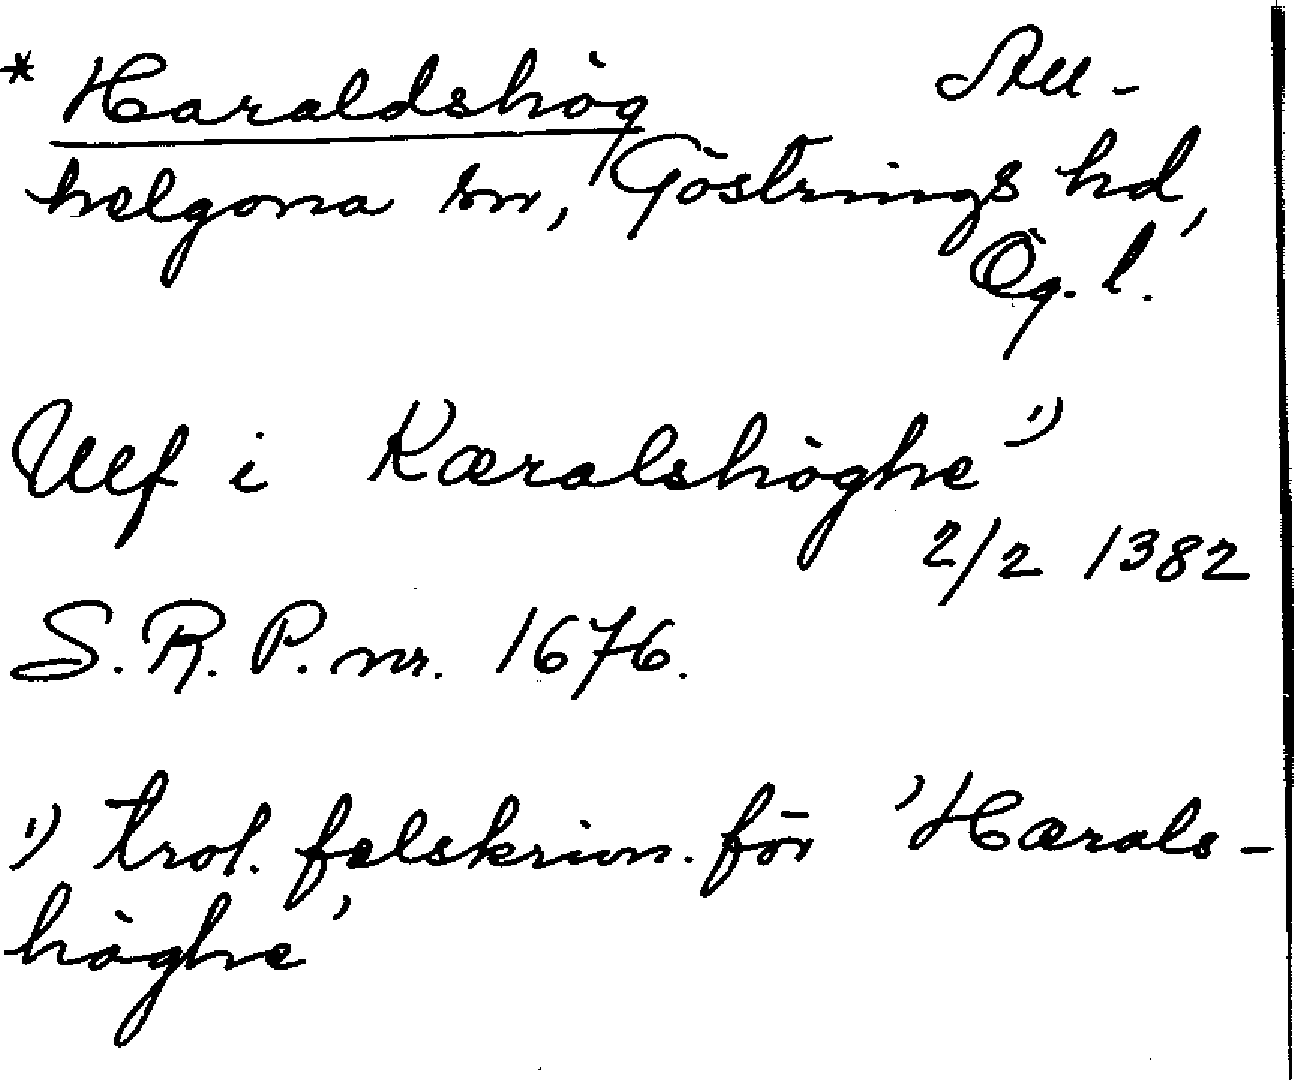 * Haraldshög All-
helgona sn, Göstrings hd,
Ög. l.
Ulf i Kæralshöghe 1)
2/2 1382
S.R.P. nr. 1676.
1) trol. felskrivn. för 'Hærals-
höghe'